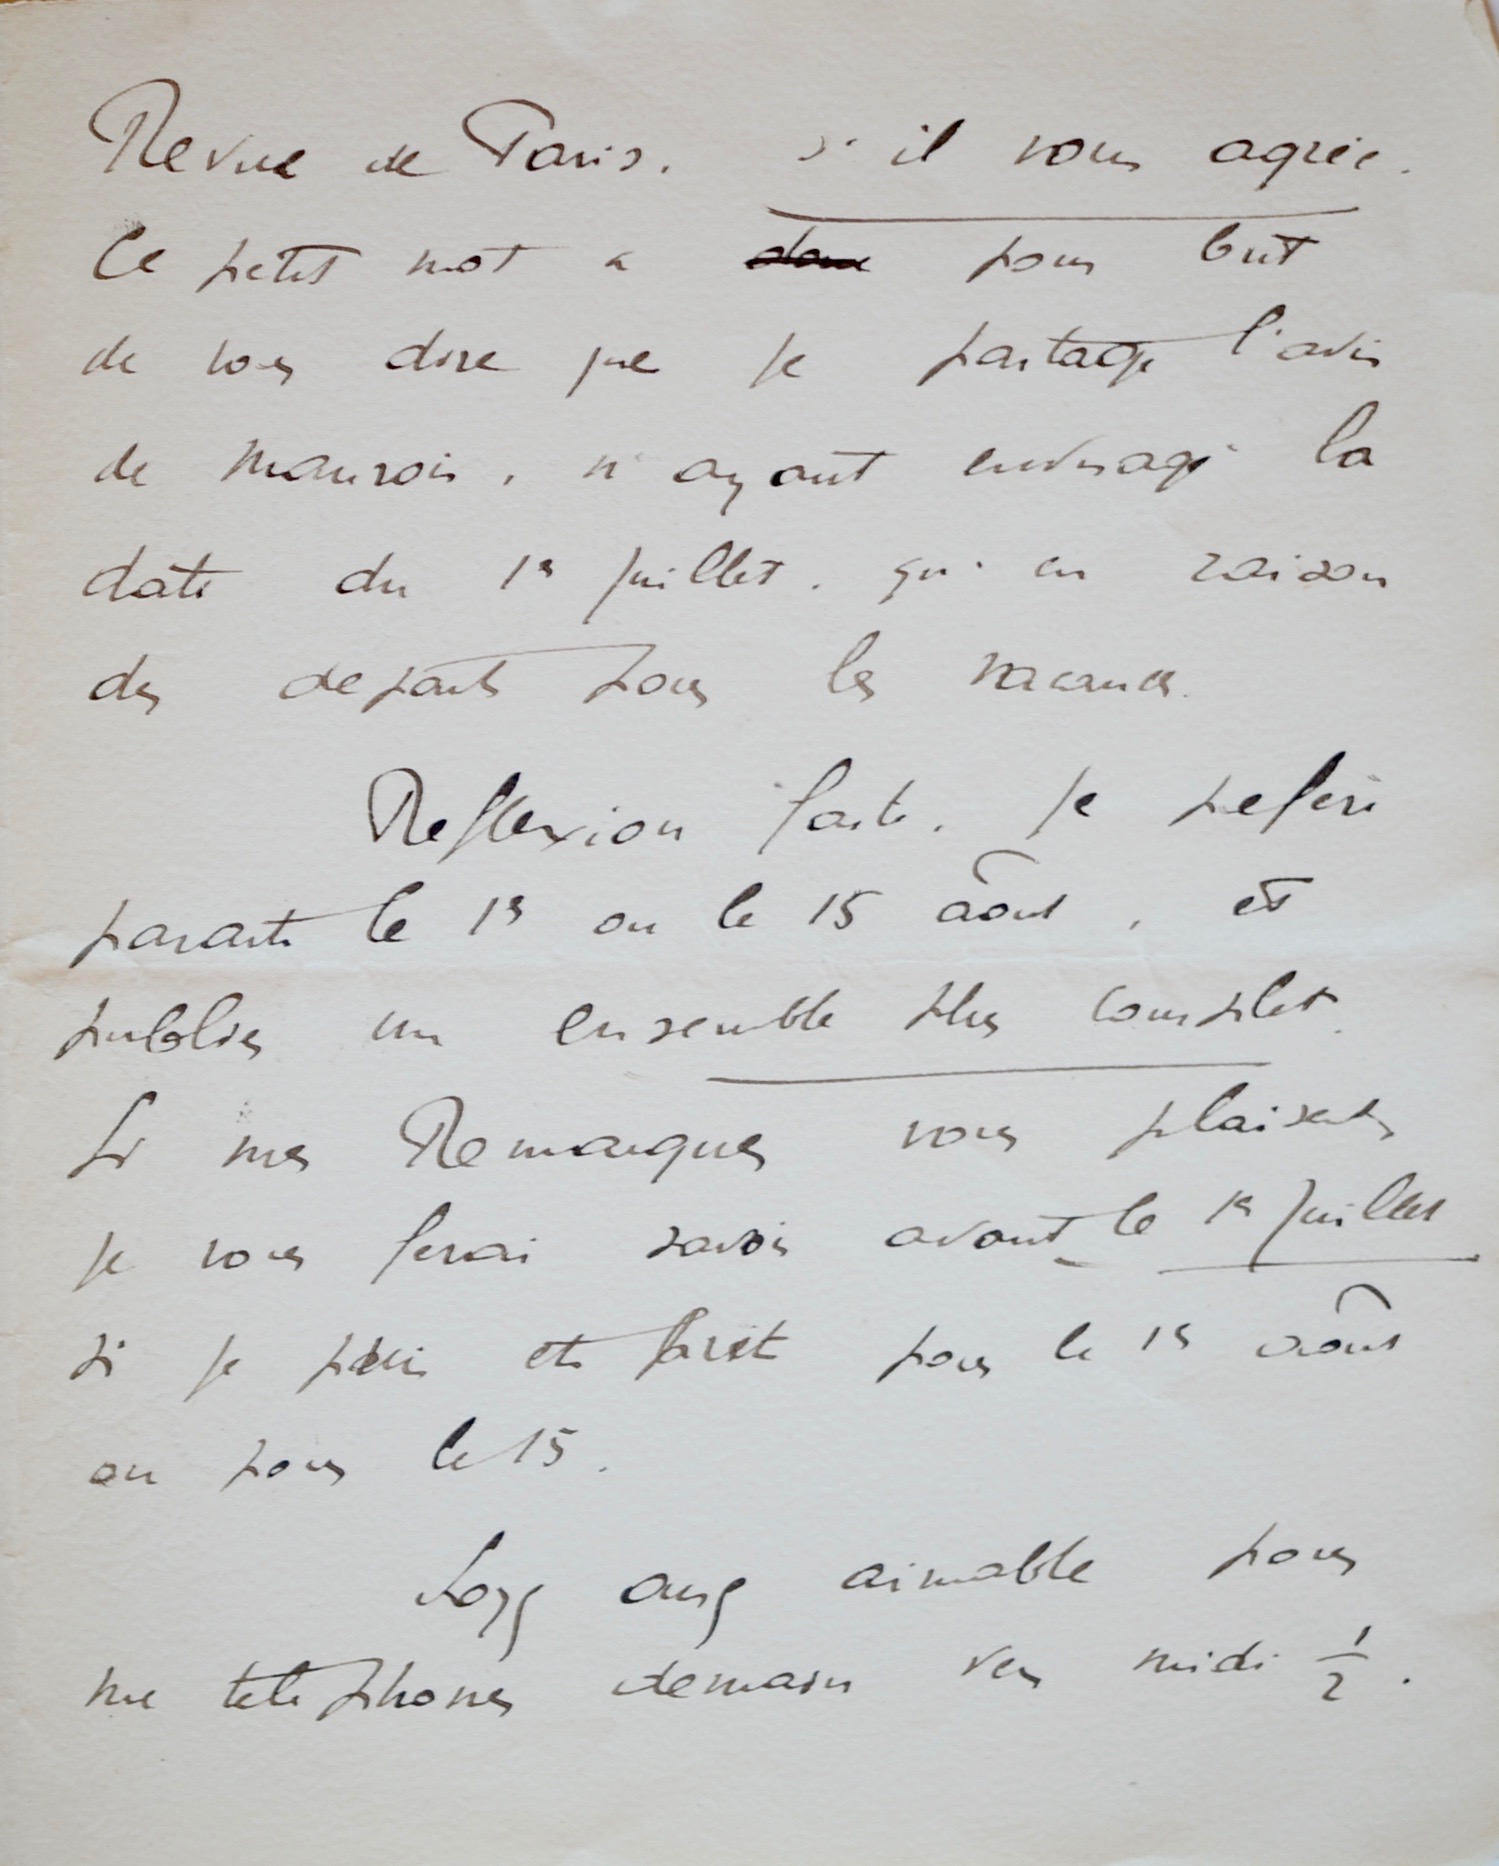 Revue de Paris. s'il vous agrée.
Ce petit mot a donc pour but
de vous dire que je partage l'avis
de Maurois, n'ayant envisagé la
date du 1er Juillet. qu'en raison
des departs pour les vacances.
Reflexion faite. Je prefere
paraitre le 1er ou le 15 aôut, et
publier un ensemble plus complet.
Si mes Remarques vous plaisent
je vous ferai savoir avant le 1er Juillet
si je puis etre prêt pour le 1er aôut
ou pour le 15.
Soyez assez aimable pour
me telephoner demain vers midi 1/2.